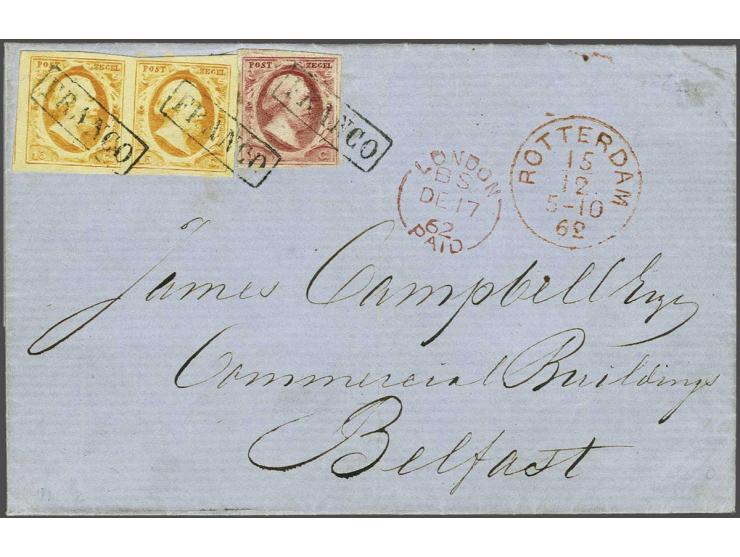 POST ZEGEL POST ZEGEL POST ZEGEL
FRANCO FRANCO FRANCO
LONDON
BS
DE 17
62
PAID
ROTTERDAM
15
12
5-10
62
James Campbell Esqr
Commercial Buildings
Belfast